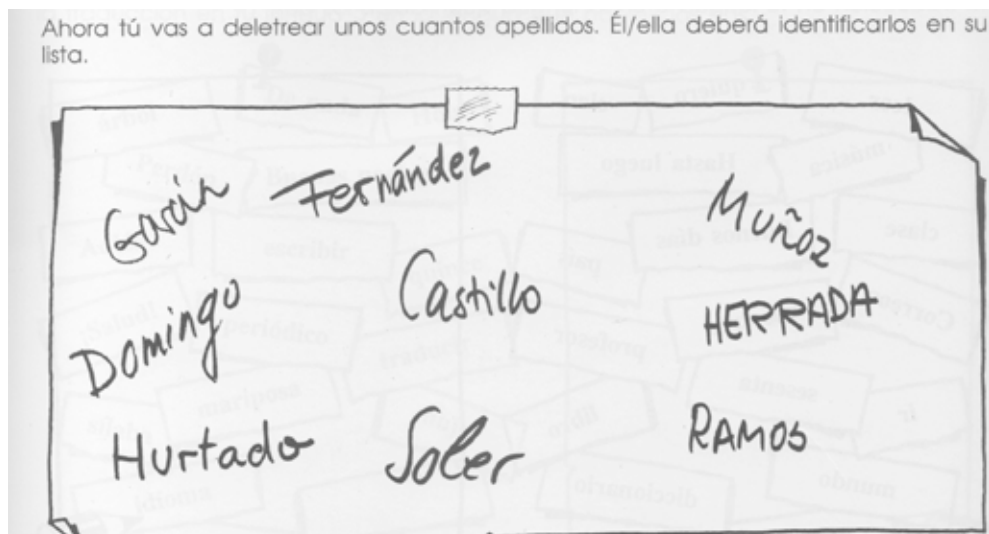 Ahora tú vas a deletrear unos cuantos apellidos. Él/ella deberá identificarlos en su
lista.
García Fernández
Muñoz
Domingo
Castillo
HERRADA
Hurtado
Soler
RAMOS